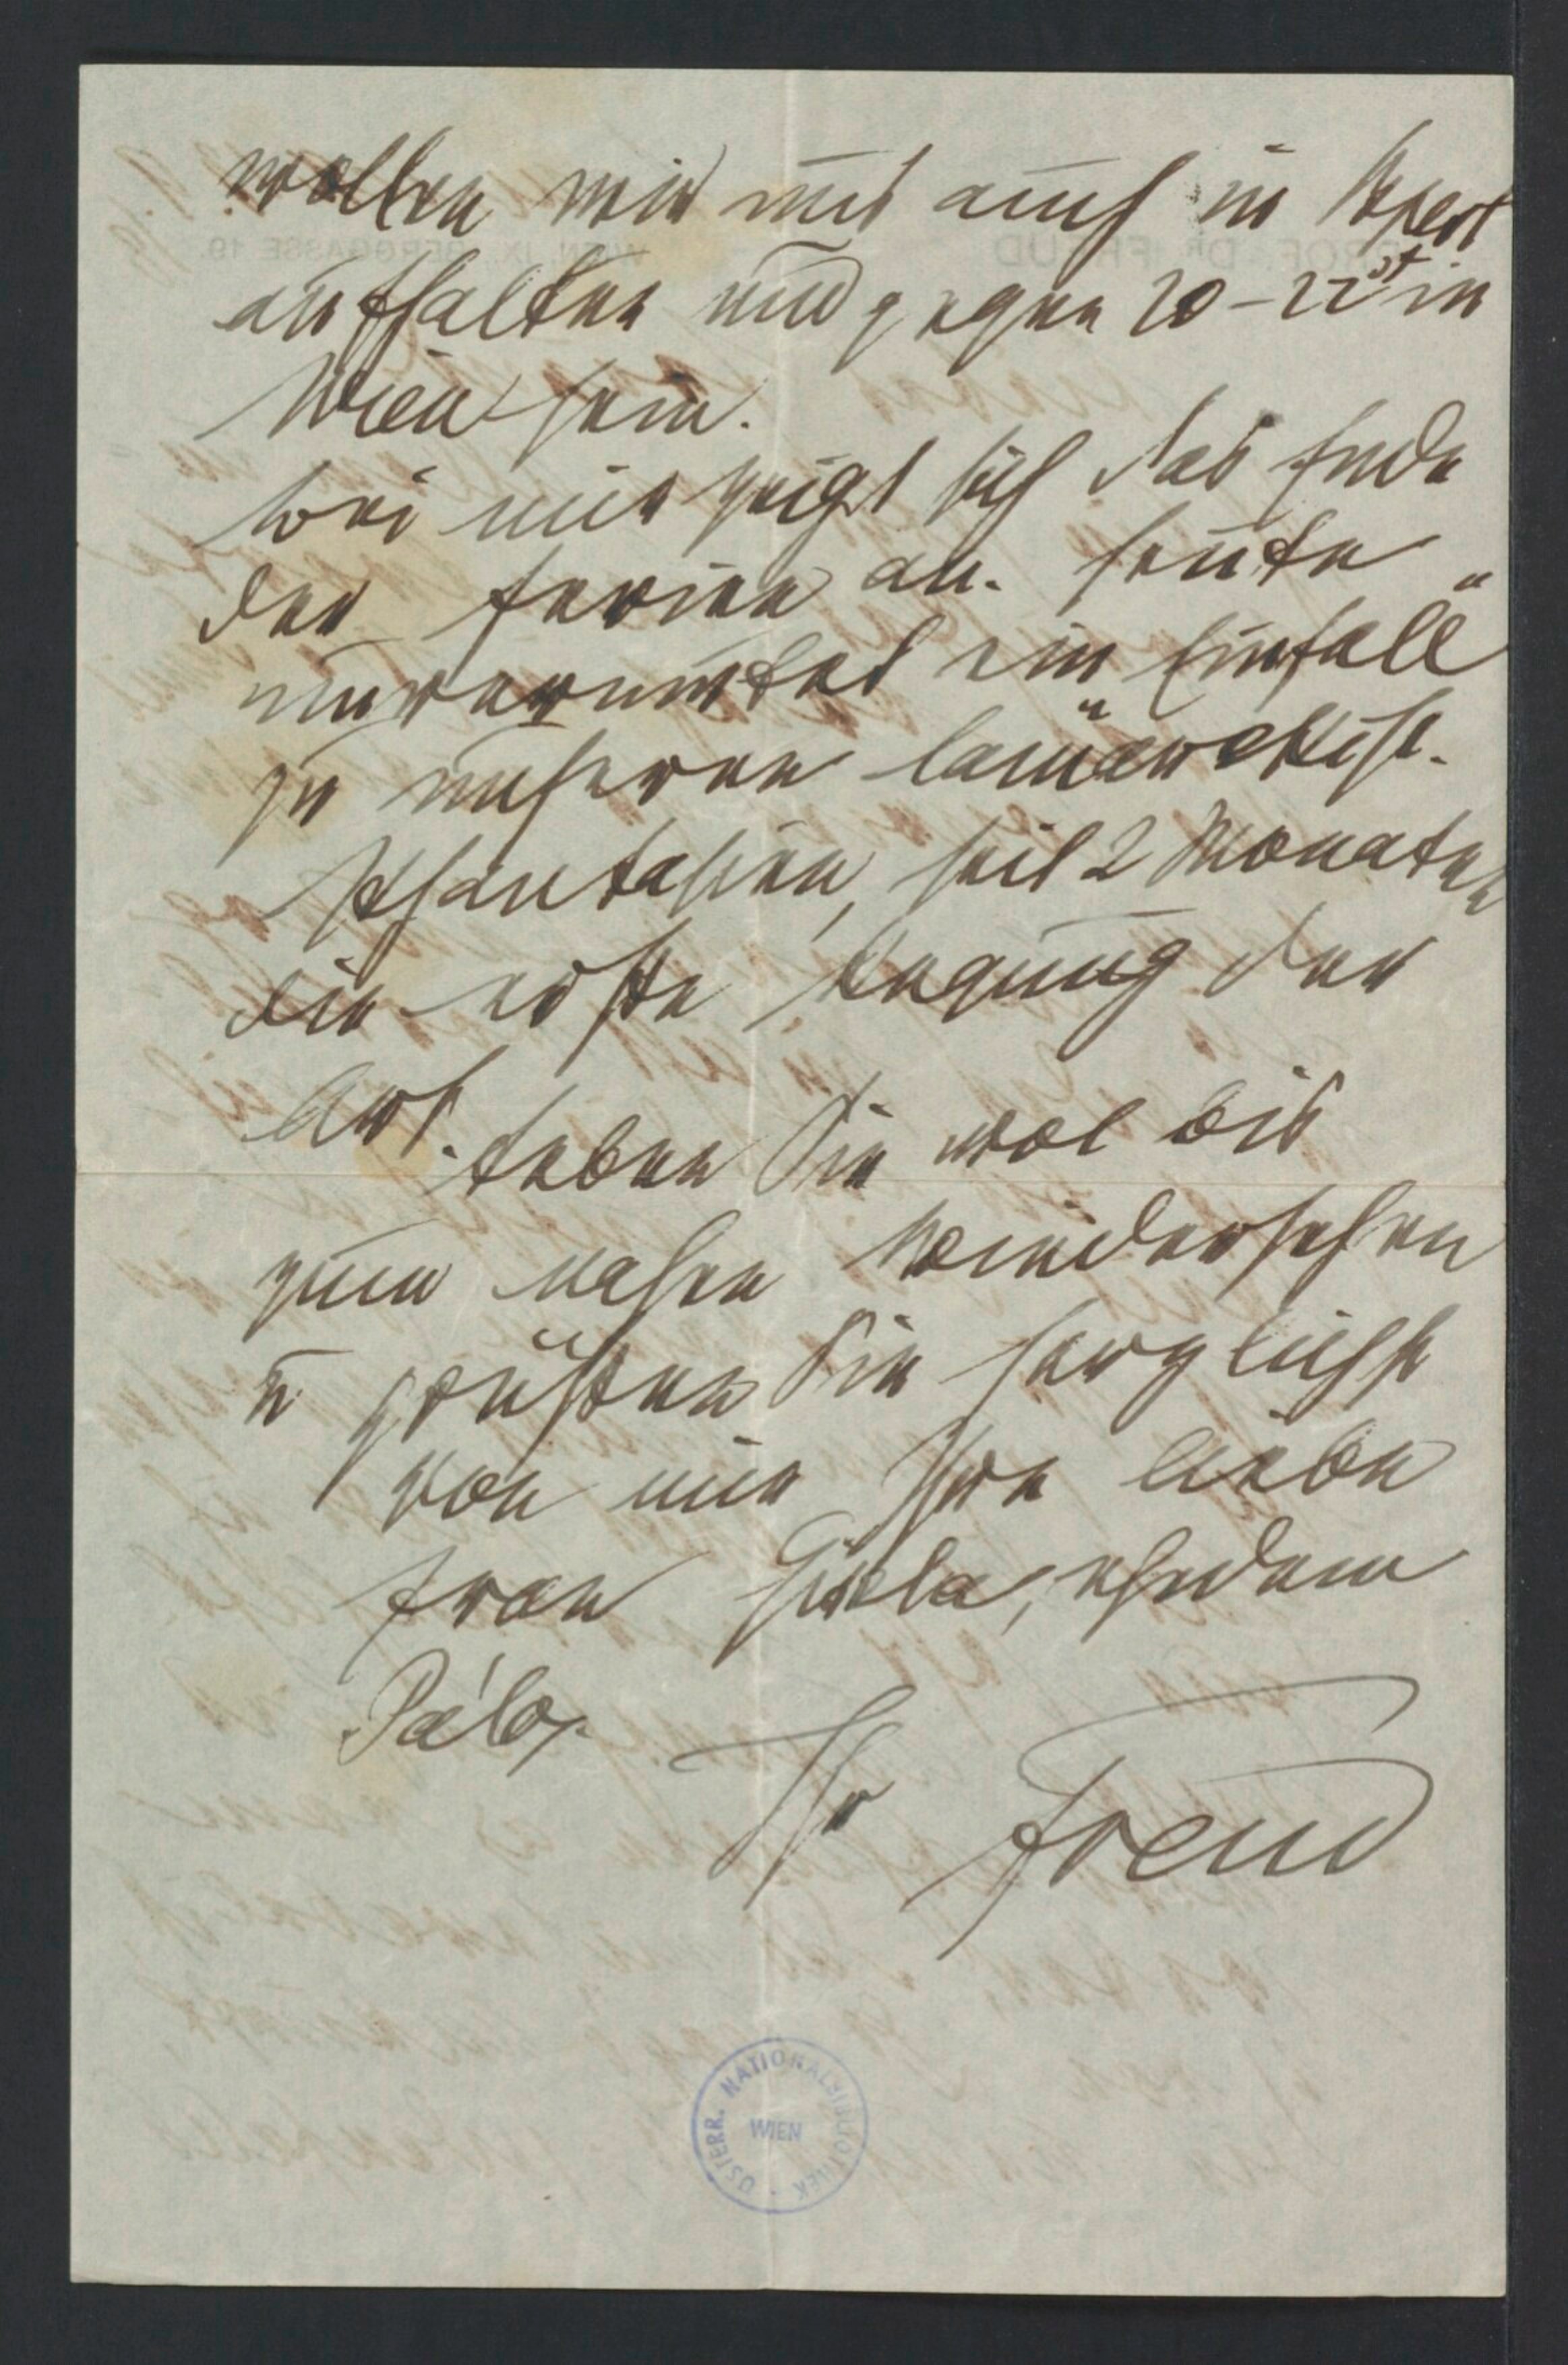 wollen wir uns auch in Bpest
aufhalten und gegen 20–22st in
Wien sein.
Bei mir zeigt sich das Ende
der Ferien an. Heute
unvermutet ein "Einfall"
zu unseren lamarckist.
Phantasien, seit 2 Monaten
die erste Regung der
Art.
Leben Sie wol bis
zum nahen Wiedersehen
u grüßen Sie herzlichst
von mir Ihre liebe
Frau Gisela, ehedem
Pálos.
Ihr Freud
ÖSTERR. NATIONALBIBLIOTHEK
WIEN
PROF. DR FREUD
WIEN, IX., BERGGASSE 19.